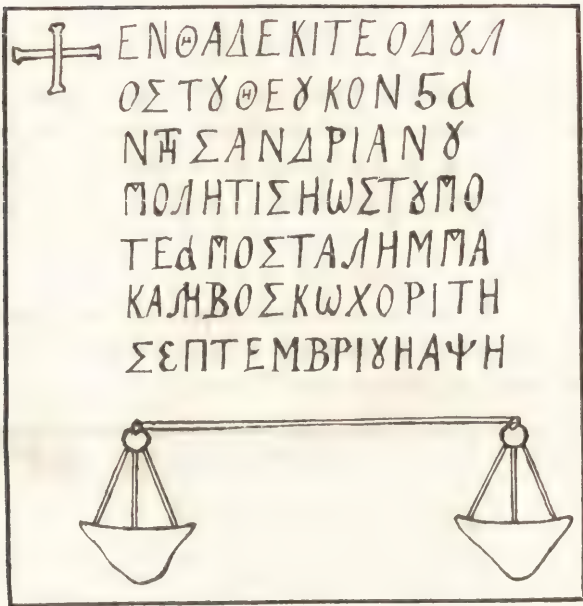 ΕΝΘΑΔΕΚΙΤΕΟΔȢΛ
ΟΣΤȢΘΕȢΚΟΝϚα
ΝΤΗΣΑΝΔΡΙΑΝȢ
ΠΟΛΗΤΙΣΗΩΣΤȢΠΟ
ΤΕαΠΟΣΤΑΛΗΜΜΑ
ΚΑΛΗΒΟΣΚΩΧΟΡΙΤΗ
ΣΕΠΤΕΜΒΡΙȢΗΑΨΗ